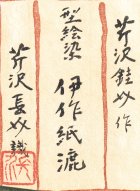 芹沢銈介作
型絵染 伊作紙漉
芹沢長介識